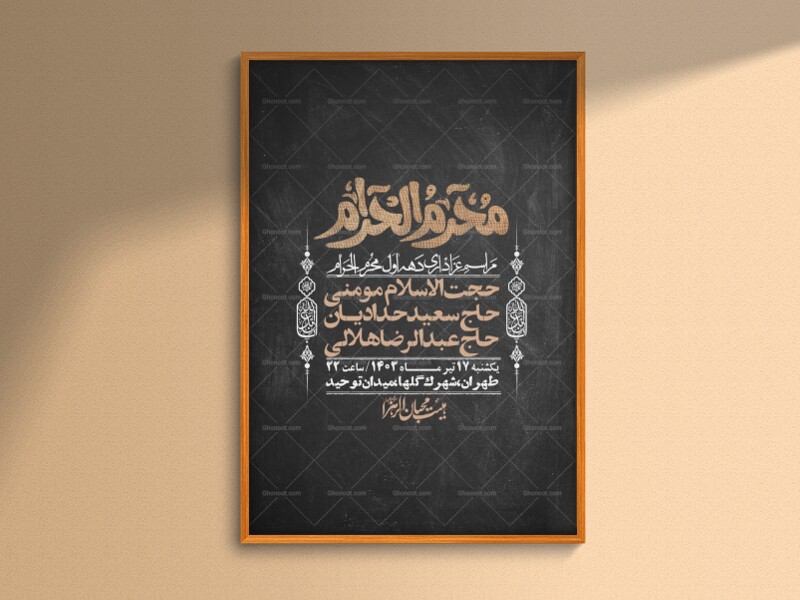 محرم الحرام
مراسم عزاداری دهه اول محرم الحرام
حجت الاسلام مومنی
حاج سعید حدادیان
حاج عبدالرضا هلالی
یکشنبه ۱۷ تیر مـاه ۱۴۰۳ / ساعت ۲۲
طهران، شهرک گلها، میدان توحید
هیئت محبان الزهرا
Ghonoot.com